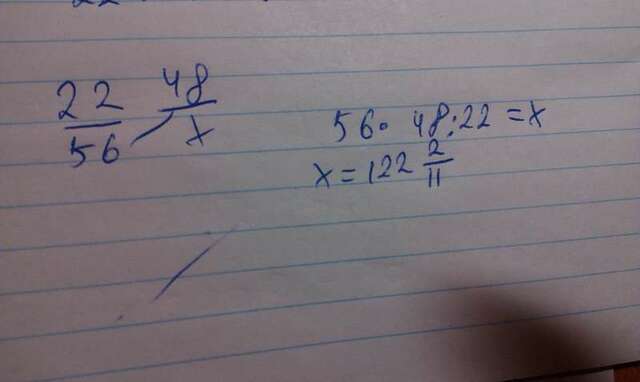 22/56 48/x
56 · 48 : 22 = x
x = 122 2/11